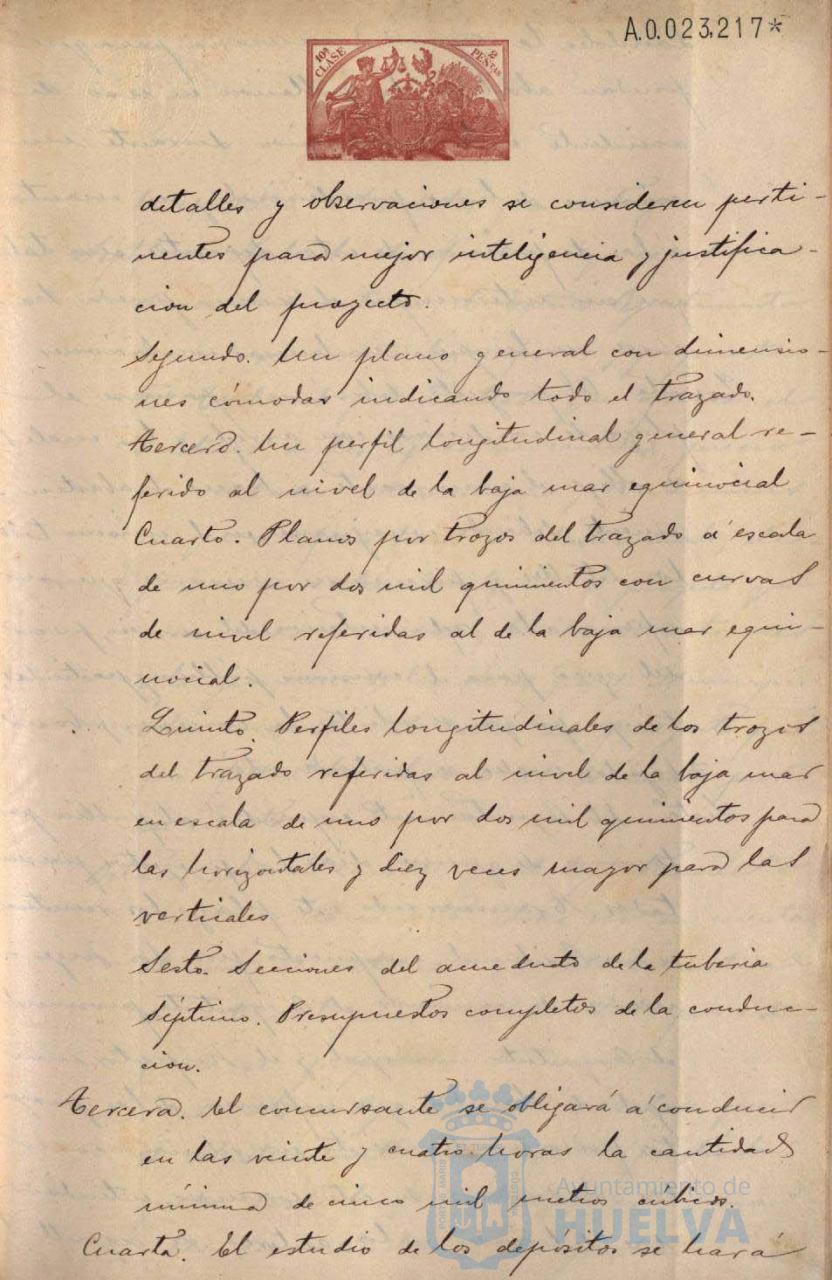 A.0.023,217*
10ª CLASE
2 PESTAS
detalles y observaciones se consideren perti-
nentes para mejor inteligencia y justifica-
cion del proyecto.
Segundo. Un plano general con dimensio-
nes cómodas indicando todo el trazado.
Tercero. Un perfil longitudinal general re-
ferido al nivel de la baja mar equinocial
Cuarto. Planos por trozos del trazado á escala
de uno por dos mil quinientos con curvas
de nivel referidas al de la baja mar equi-
nocial.
Quinto. Perfiles longitudinales de los trozos
del trazado referidas al nivel de la baja mar
en escala de uno por dos mil quinientos para
las horizontales y diez veces mayor para las
verticales
Sesto. Secciones del acueducto de la tuberia
Séptimo. Presupuestos completos de la conduc-
cion.
Tercera. El concursante se obligará á conducir
en las veinte y cuatro horas la cantidad
mínima de cinco mil metros cúbicos.
Cuarta. El estudio de los depósitos se hará
Ayuntamiento de
HUELVA